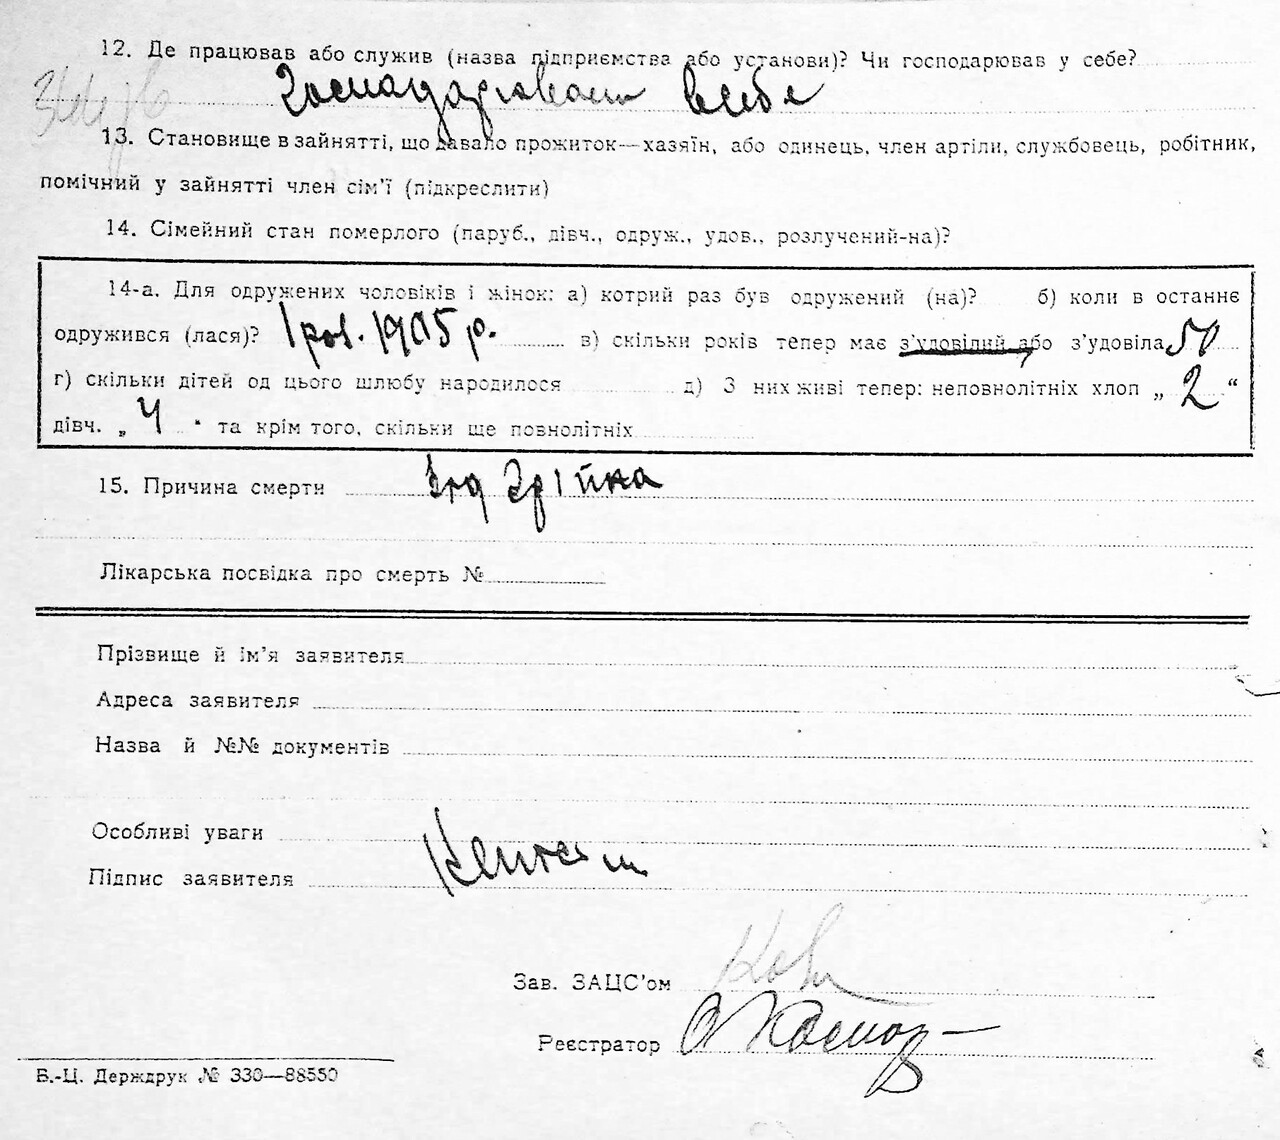 12. Де працював або служив (назва підприємства або установи)? Чи господарював у себе?
Господарював в себе
13. Становище в зайнятті, що давало прожиток—хазяїн, або одинець, член артіли, службовець, робітник,
помічний у зайнятті член сім'ї (підкреслити)
14. Сімейний стан померлого (паруб., дівч., одруж., удов., розлучений-на)?
14-а. Для одружених чоловіків і жінок: а) котрий раз був одружений (на)? б) коли в останнє
одружився (лася)? 1 раз. 1905 р. в) скільки років тепер має з'удовілий або з'удовіла 50
г) скільки дітей од цього шлюбу народилося д) З них живі тепер: неповнолітніх хлоп „ 2 “
дівч. „ 4 “ та крім того, скільки ще повнолітніх
15. Причина смерти
Лікарська посвідка про смерть №
Прізвище й ім'я заявителя
Адреса заявителя
Назва й №№ документів
Особливі уваги
Підпис заявителя
Зав. ЗАЦС'ом
Реєстратор
Б.-Ц. Держдрук № 330—88550